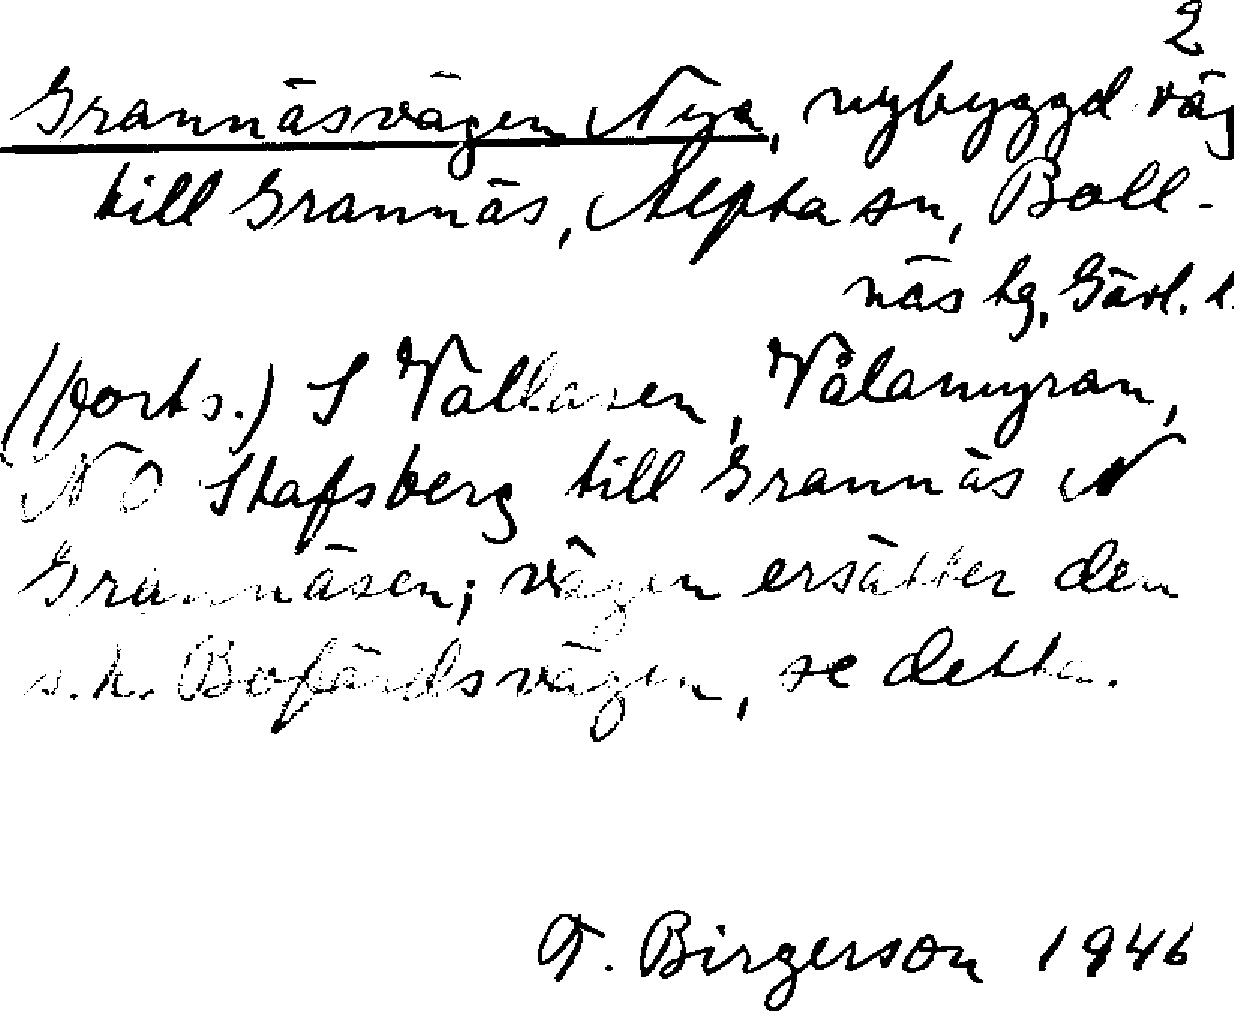 2
Grannäsvägen Nya, nybyggd väg
till Grannäs, Alfta sn, Boll-
näs tg, Gävl. l.
(forts.) S Vallåsen, Vålamyran,
NO Stafsberg till Grannäs N
Grannäsen; vägen ersätter den
s.k. Bofärdsvägen, se detta.
T. Birgerson 1946